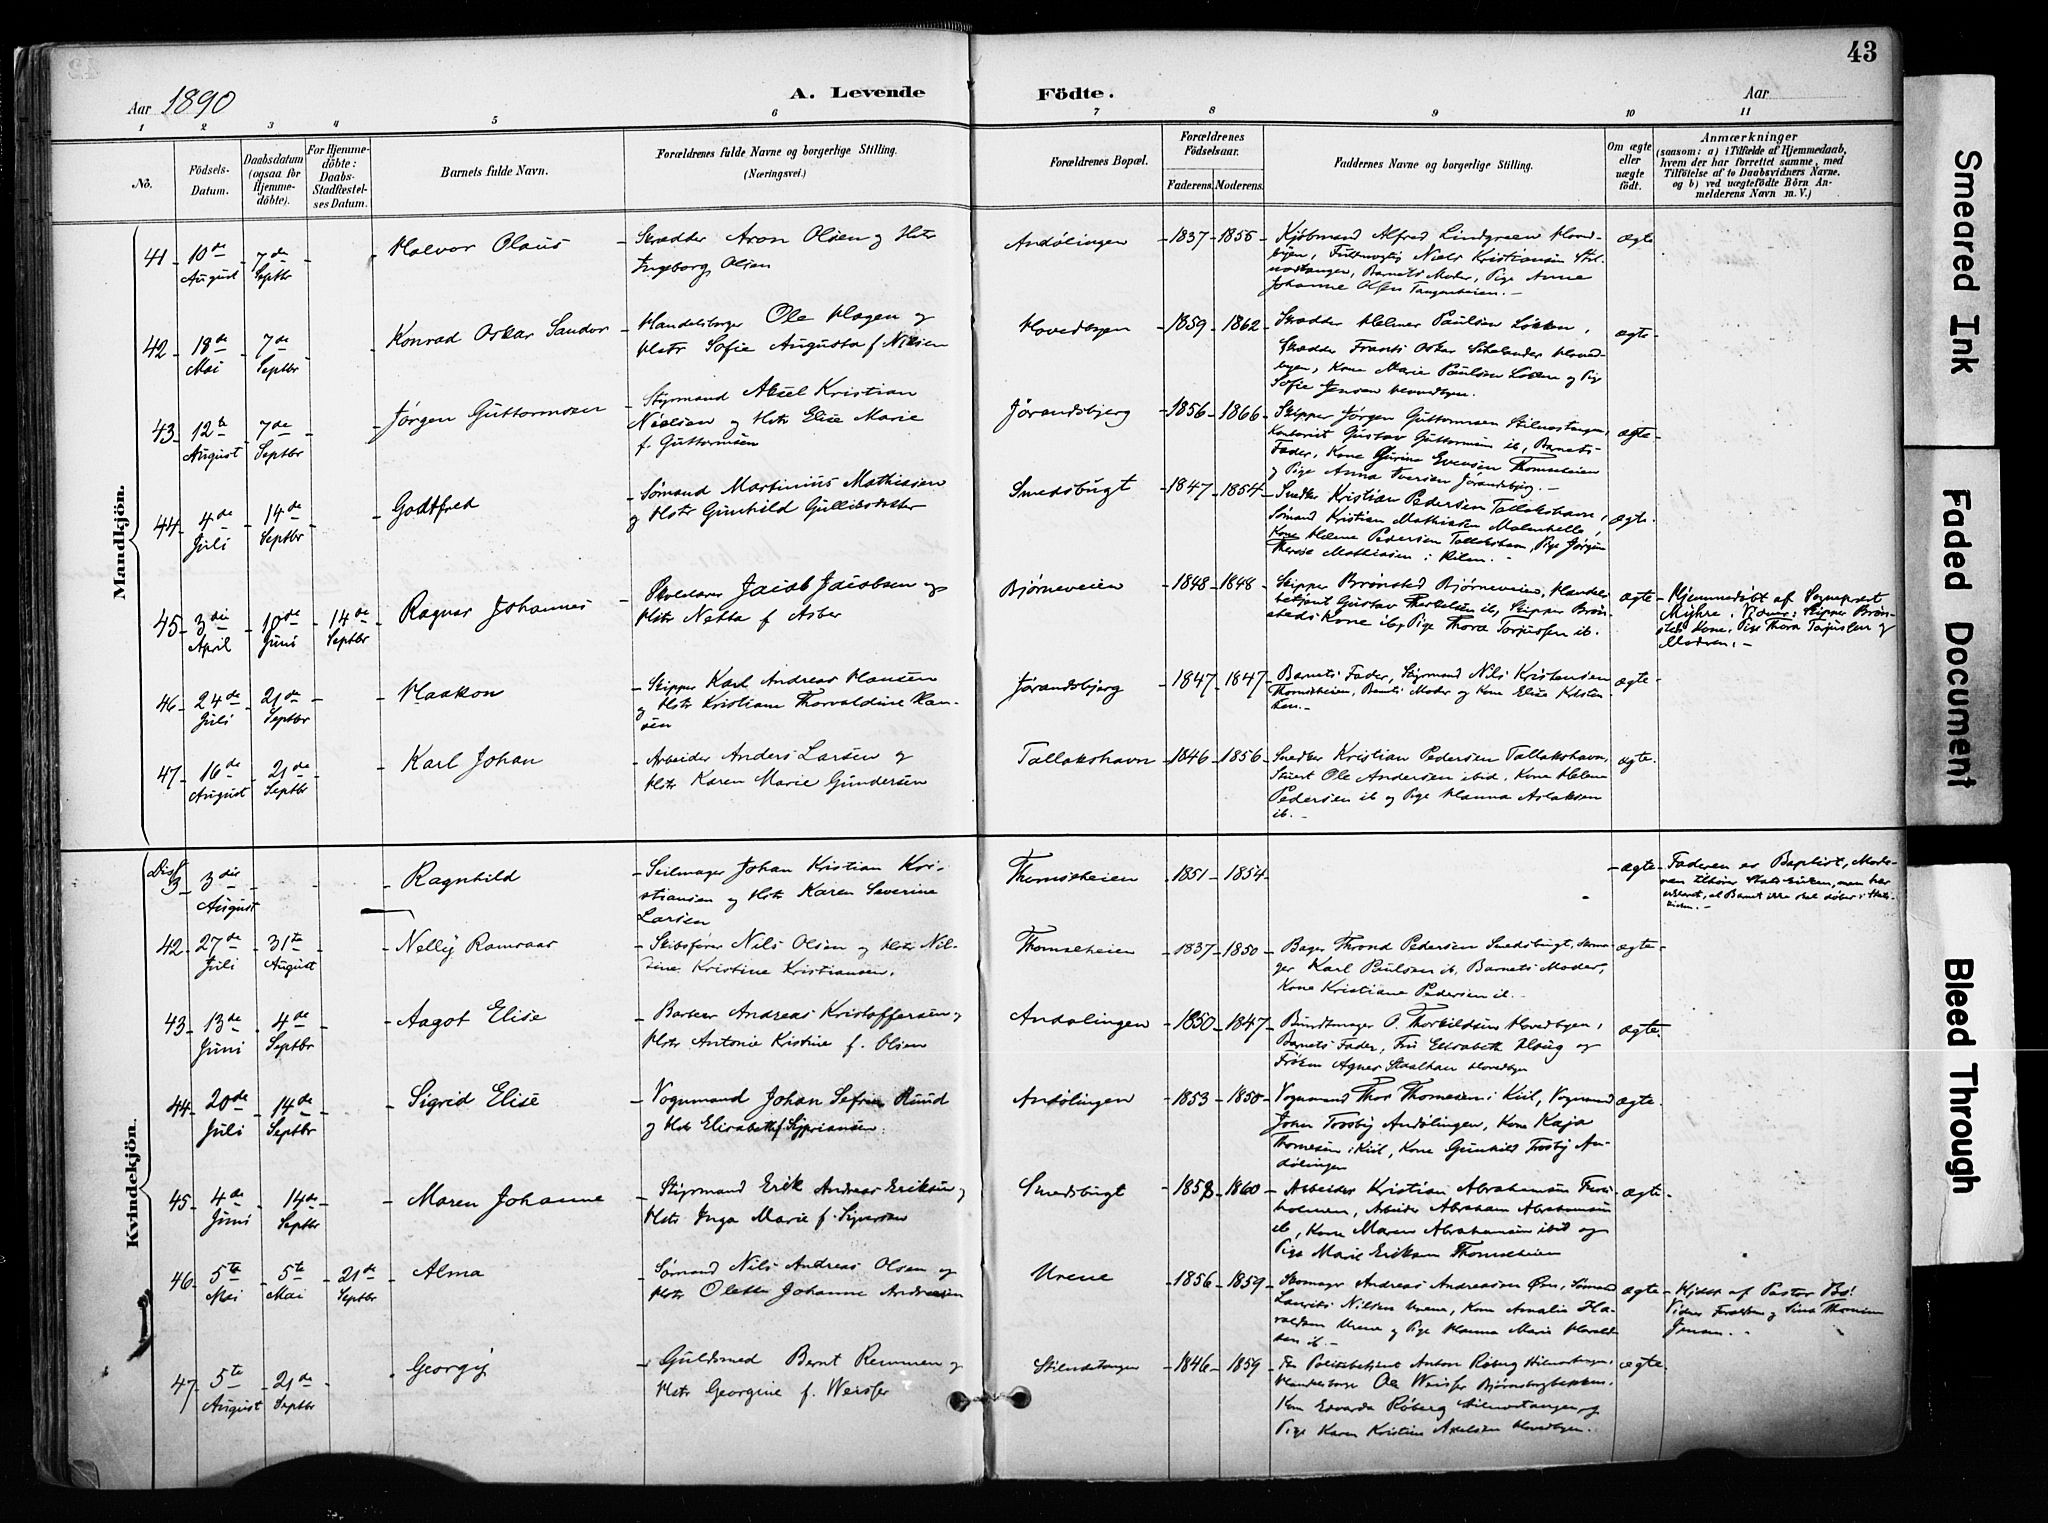 43
Aar 1890
A. Levende Födte.
Aar
1 2 3 4 5 6 7 8 9 10 11
No.
Födsels-Datum.
Daabsdatum (ogsaa for Hjemmedöbte).
For Hjemmedöbte: Daabs-Stadfestelses Datum.
Barnets fulde Navn.
Forældrenes fulde Navne og borgerlige Stilling.
(Næringsvei.)
Forældrenes Bopæl.
Forældrenes Födselsaar.
Faderens. Moderens.
Faddernes Navne og borgerlige Stilling.
Om ægte eller uægte födt.
Anmærkninger
(saasom: a) i Tilfælde af Hjemmedaab, hvem der har forrettet samme, med Tilföielse af to Daabsvidners Navne. og b) ved uægtefödte Börn Anmelderens Navn m. V.)
Mandkjön.
41 10de August 7de Septbr Halvor Olaus Skrædder Aron Olsen og Hstr
Ingeborg Olsen
Andølingen 1837 1855 Kjøbmand Alfred Lindgreen Hoved-
byen, Niels Kristiansen
Barnets Moder, Pige Anne
Johanne Olsen Tangenheien.
ægte
42 18de Mai 7de Septbr Konrad Oskar Sandor Handelsborger Ole Hagen og
Hstr Sofie Augusta f. Nilsen
Hovedbyen 1859 1862 Skrædder Helmer Paulsen Løkken,
Skrædder Frants Oskar Hoved-
byen, Kone Marie Paulsen og Pige
Sofie Jensen Hovedbyen.
ægte
43 12te August 7de Septbr Jørgen Guttormsen Styrmand Aksel Kristian
Nielsen og Hstr Elise Marie
f. Guttormsen
Jørandsbjerg 1856 1866 Skipper Jørgen Guttormsen
Kontorist Gustav Guttormsen ib, Barnets
Fader, Kone Gurine Evensen Thomseheien
og Pige Anna Iversen Jørandsbjerg.
ægte
44 4de Juli 14de Septbr Godtfred Sømand Martinius Mathiasen
og Hstr Gunhild
Smedsbugt 1847 1854 Snedker Kristian Pedersen Tallakshavn,
Sømand Kristian Mathiasen
Kone Helene Pedersen Tallakshavn, Pige Jørgine
Therese Mathiasen i Kilen.
ægte
45 3die April 10de Juni 14de Septbr Ragnar Johannes Jacob Jacobsen og
Hstr Netta f. Asber
Bjørneveien 1848 1848 Skipper Brønsted Bjørneveien, Handels-
betjent Gustav Therkelsen ib, Skipper Brøn-
steds Kone ib, Pige Thora Torjussen ib.
ægte
Hjemmedøbt af Sogneprest
Myhre. Vidner: Skipper Brøn-
steds Kone, Pige Thora Torjussen og
Moderen.
46 24de Juli 21de Septbr Haakon Skipper Karl Andreas Hansen
og Hstr Kristiane Thorvaldine Han-
sen
Jørandsbjerg 1847 1847 Barnets Fader, Styrmand Nils Kristensen
Thomseheien, Barnets Moder og Kone Elise Kristen-
sen.
ægte
47 16de August 21de Septbr Karl Johan Arbeider Anders Larsen og
Hstr Karen Marie Gundersen
Tallakshavn 1846 1856 Snedker Kristian Pedersen Tallakshavn,
Stuert Ole Andersen ibid, Kone Helene
Pedersen ib og Pige Hanna Aslaksen
ib.
ægte
Kvindekjön.
Diss 3 3die August Ragnhild Seilmager Johan Kristian Kri-
stiansen og Hstr Karen Severine
Larsen
Thomseheien 1851 1854
ægte
Faderen er Baptist, Mode-
ren tilhører Statskirken, men har
erklæret, at Barnet ikke skal døbes i Stats-
kirken.
42 27de Juli 31te August Nelly Skibsfører Nils Olsen og Hstr Nil-
sine Kristine Kristiansen.
Thomseheien 1837 1850 Bager Thrond Pedersen Smedsbugt,
Karl Paulsen ib, Barnets Moder,
Kone Kristiane Pedersen ib.
ægte
43 13de Juni 4de Septbr Aagot Elise Barbeer Andreas Kristoffersen og
Hstr Antonie Kristine f. Olsen
Andølingen 1850 1847 Bundtmager O. Thorkildsen Hovedbyen,
Barnets Fader, Fru Elisabeth Haug og
Frøken Agnes Staalhan Hovedbyen
ægte
44 20de Juli 14de Septbr Sigrid Elise Vognmand Johan Sefrin Ruud
og Hstr Elisabeth f. Syprianseu.
Andølingen 1853 1850 Vognmand Thor Thomesen i Kiil, Vognmand
Johan Frosby Andølingen, Kone Kaja
Thomesen i Kiil, Kone Gunhild Frosby An-
dølingen
ægte
45 4de Juni 14de Septbr Maren Johanne Styrmand Erik Andreas Eriksen og
Hstr Inga Marie f. Sivertsen
Smedsbugt 1858 1860 Arbeider Kristian Abrahamsen
holmen, Arbeider Abraham Abrahamsen
ib, Kone Maren Abrahamsen ibid og
Pige Marie Eriksen Thomseheien
ægte
46 5te Mai 5te Mai 21de Septbr Alma Sømand Nils Andreas Olsen og
Hstr Olette Johanne Andresen
Urene 1856 1859 Skomager Andreas Andreassen Øen, Sømand
Laurits Nilsen Urene, Kone Amalie Ha-
raldsen Urene og Pige Hanna Marie Harald-
sen ib.
ægte
Hjdøbt af Pastor Bø.
Vidner: Forældrene og Sina Thomine
Jensen.
47 5te August 21de Septbr Georgij Guldsmed Bernt Remmen og
Hstr Georgine f. Weisser
1846 1859 Politibetjent Anton Røberg
Handelsborger Ole Weisser Bjørnsbergbakken,
Kone Edvarda Røberg og
Pige Karen Kristine Axelsen Hovedbyen.
ægte
Smeared Ink
Faded Document
Bleed Through